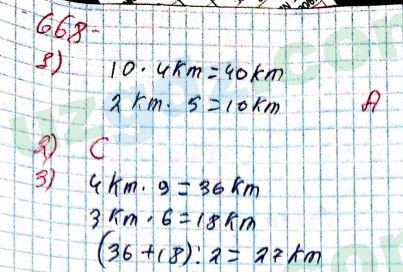 668-
1)
10 · 4km = 40km
2 km · 5 = 10km A
2) C
3)
4km · 9 = 36km
3 km · 6 = 18km
(36+18):2 = 27km